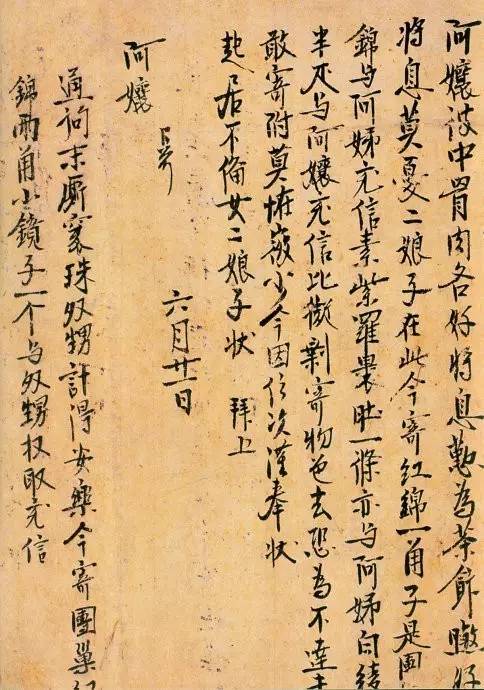 阿孃彼中骨肉各好將息勤為茶飰好
將息莫憂二娘子在此今寄紅錦一角子是團
錦与阿姊充信素紫羅裹肚一條亦与阿姊白綾
半疋与阿孃充信比擬剩寄物色去恐為不達未
敢寄附莫怪微少今因信次謹奉狀
起居不備女二娘子狀 拜上
六月廿一日
阿孃
通末廝珠奴甥計得安樂今寄團巢紅
錦兩角小鏡子一个与奴甥收取充信